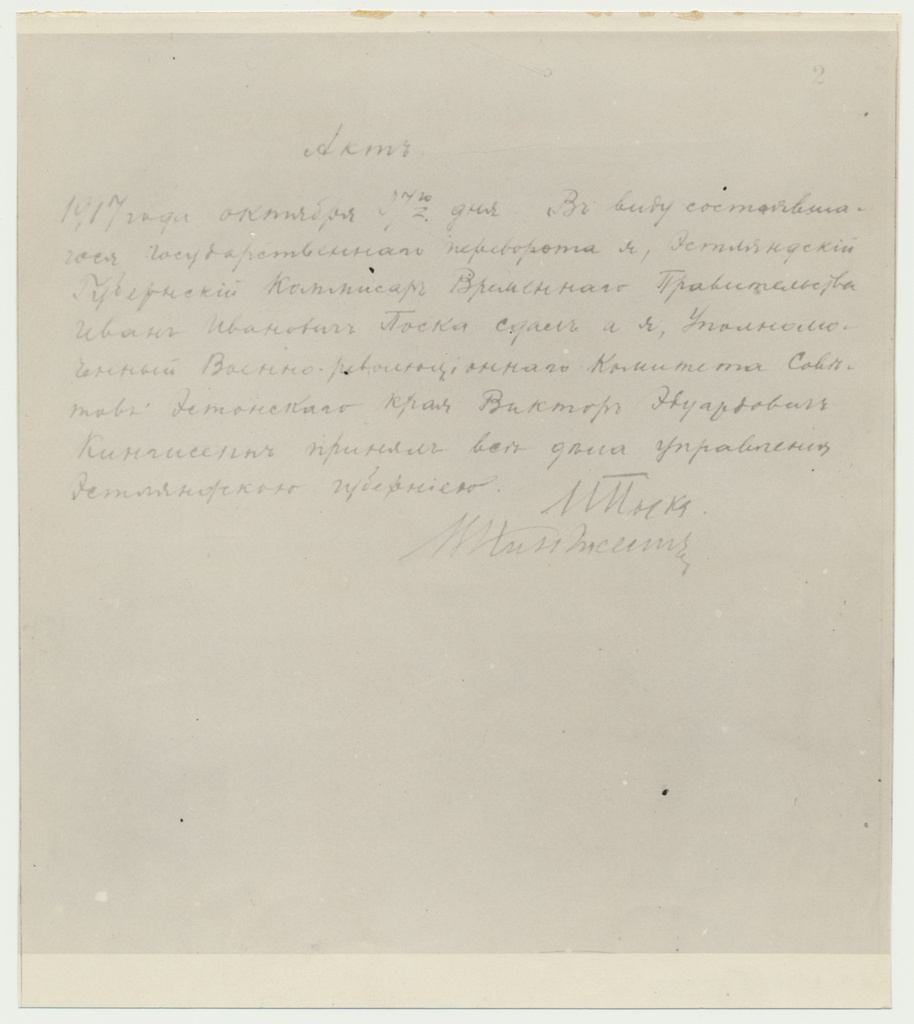 2
Актъ
1917 года октября 27го дня Въ виду состоявша-
гося государственнаго переворота я, Эстляндскій
Губернскій Комиссаръ Временнаго Правительства
Иванъ Ивановичъ Поска сдалъ и я, Уполномо-
ченный Военно-революціоннаго Комитета Совѣ-
товъ Эстонскаго края Викторъ Эдуардовичъ
Кингисеппъ принялъ всѣ дѣла управленія
Эстляндскою губерніею.
И Поска.